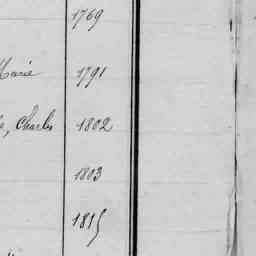 1769
Marie 1791
, Charles 1802
1803
1815